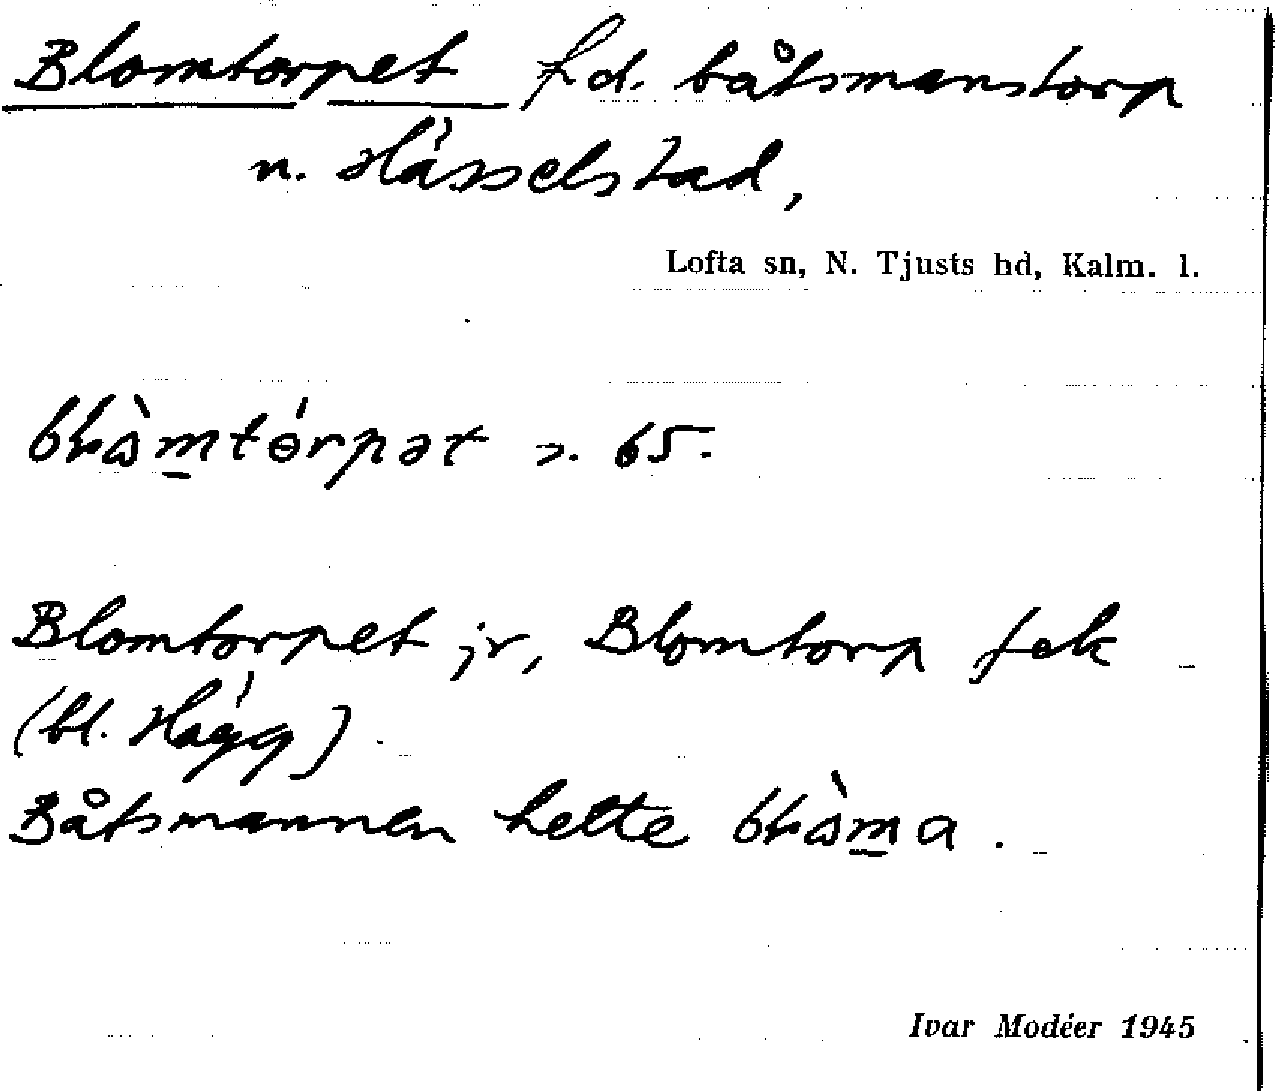 Blomtorpet f.d. båtsmanstorp
n. Hässelstad,
Lofta sn, N. Tjusts hd, Kalm. l.
65.
Blomtorpet jr, Blomtorp fek
(bl. Hägg)
Båtsmannen hette
Ivar Modéer 1945